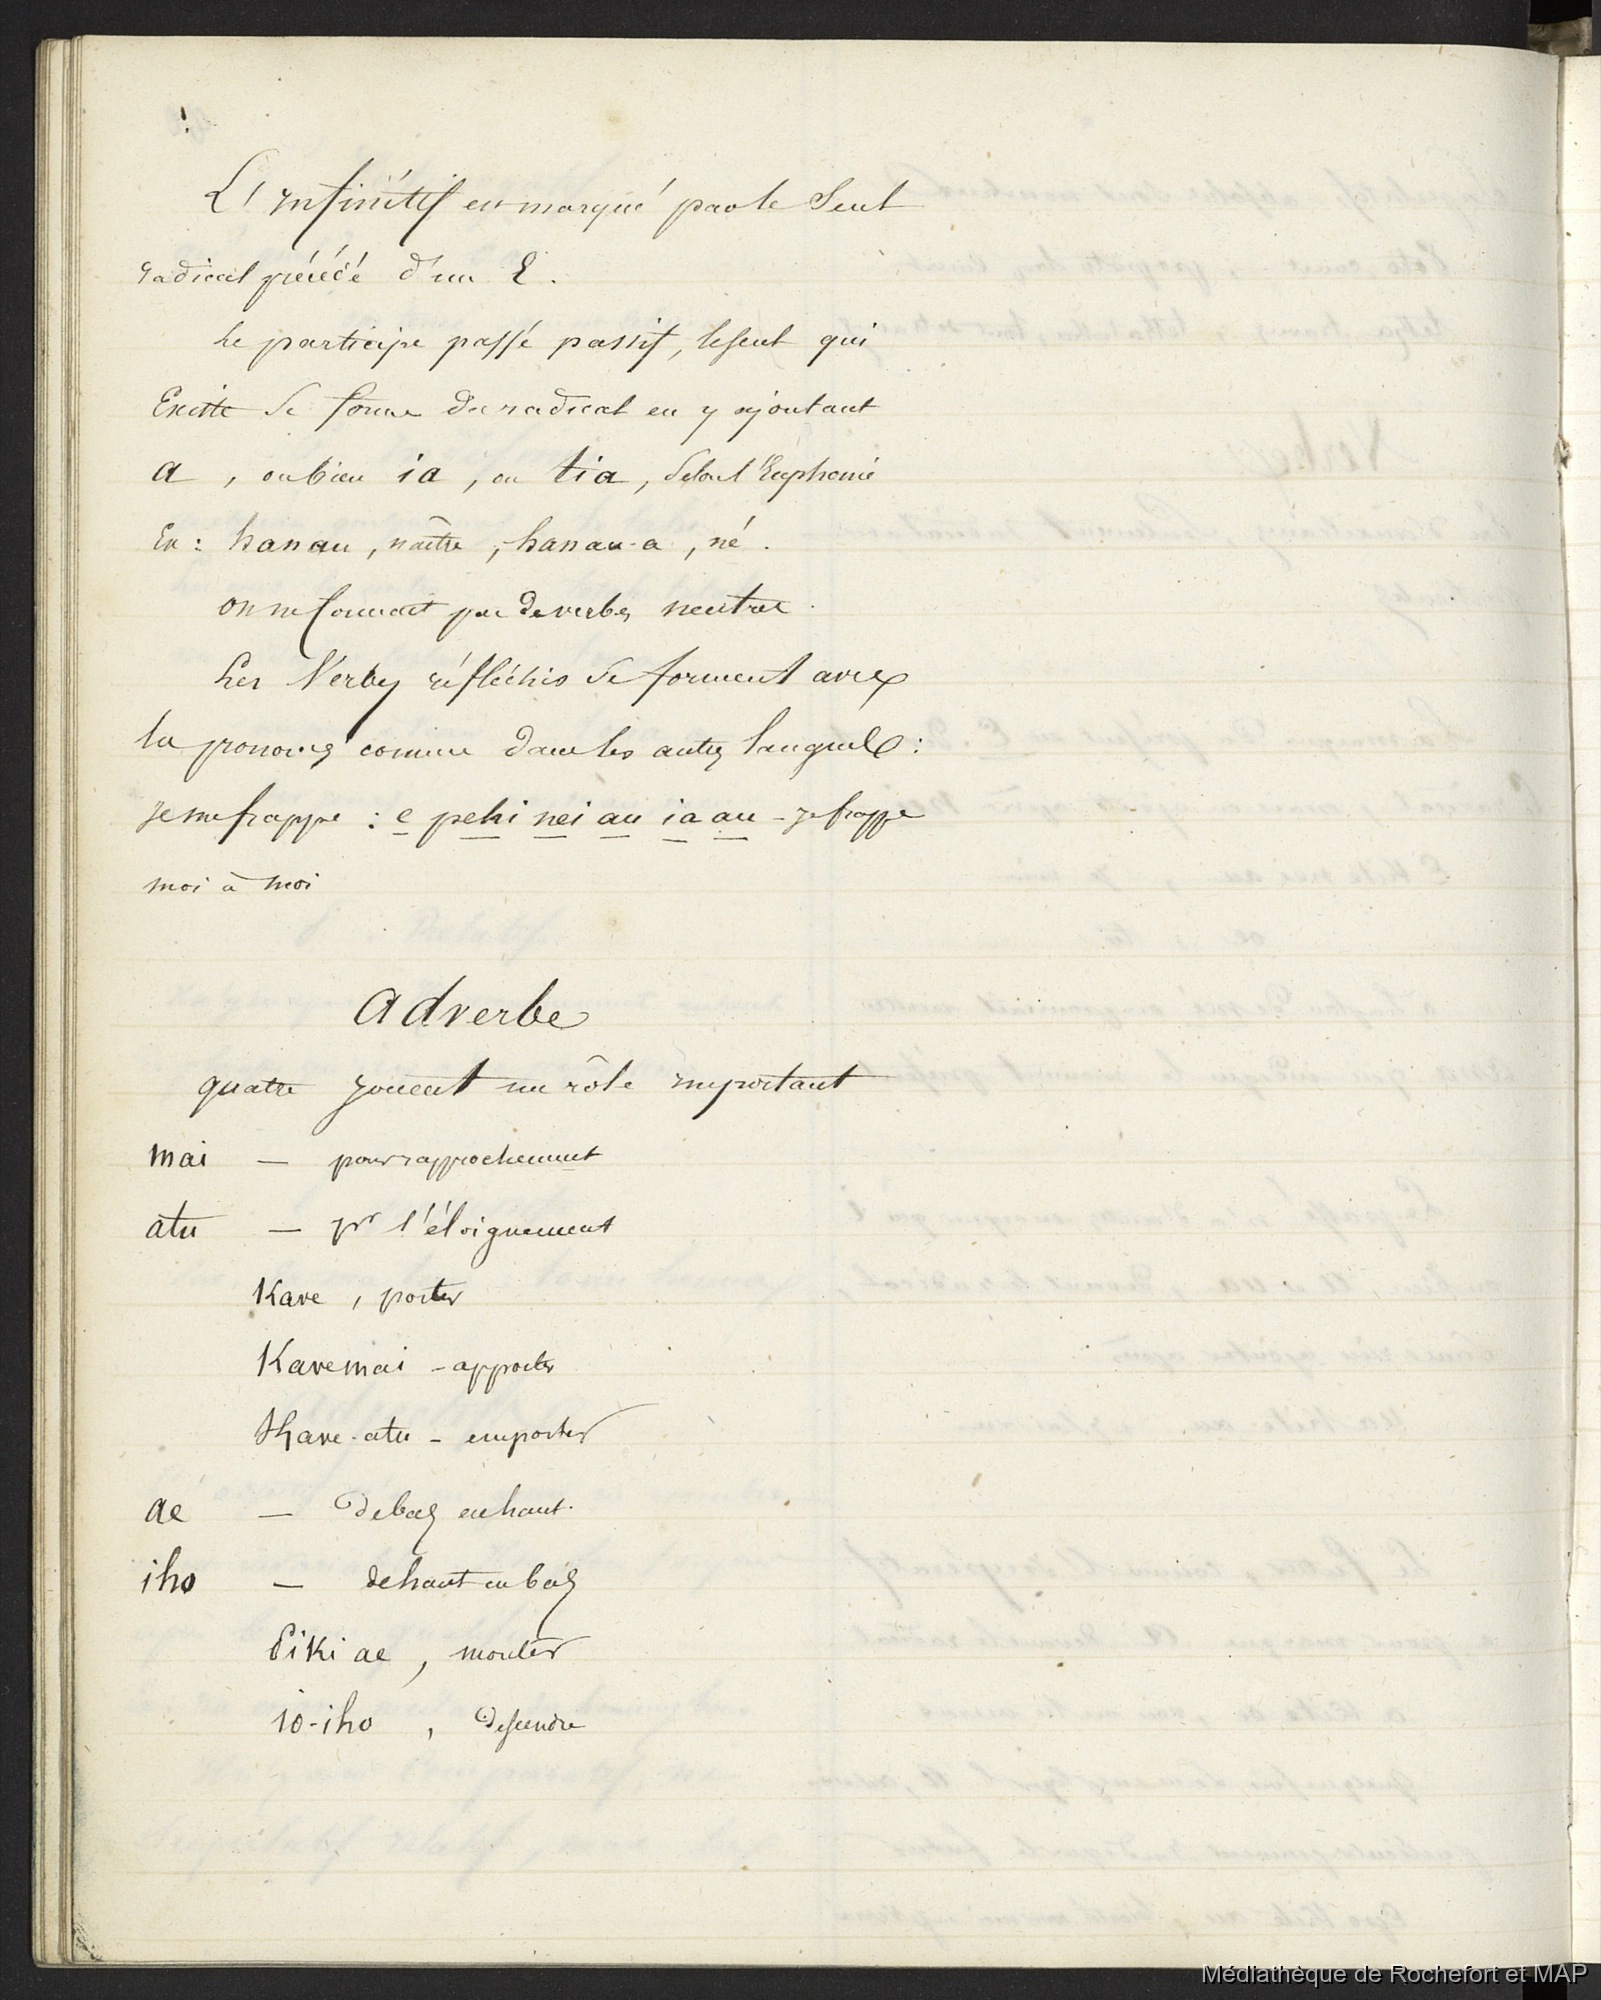 L'Infinitif est marqué par le seul
radical précédé d'un E.
le participe passé passif, le seul qui
Existe se forme du radical en y ajoutant
a, ou bien ia, ou tia, selon l'Euphonie
Ex: hanau, naître, hanau-a, né.
on ne connait pas de verbes neutres.
Les Verbes réfléchis se forment avec
les pronoms comme dans les autres langues:
je me frappe: e pehi nei au ia au - je frappe
moi à moi
Adverbe
quatre jouent un rôle important
mai — pour rapprochement
atu — pr l'éloignement
Kave, porter
Kavemai - apporter
Kave-atu - emporter
ae — de bas en haut.
iho — de haut en bas
Piki ae, monter
io-iho, descendre
Médiathèque de Rochefort et MAP